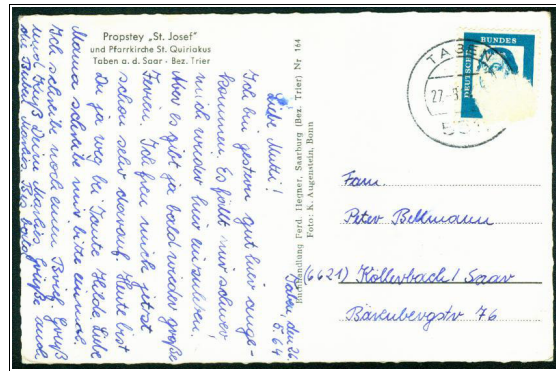 Propstey „St. Josef"
und Pfarrkirche St. Quiriakus
Taben a. d. Saar - Bez. Trier
Buchhandlung Ferd. Hegner, Saarburg (Bez. Trier) Nr 164
Foto: K. Augenstein, Bonn
DEUTSCHE BUNDES
TABEN
27.
Taben, den 26.
5.64
Liebe Mutti!
Ich bin gestern gut hier ange-
kommen. Es fällt mir schwer
mich wieder hier einzuleben.
Aber es gibt ja bald wieder große
Ferien. Ich freu mich jetzt
schon sehr darauf. Heute bist
Du ja weg bei Tante Hilde. Liebe
Mama schreibe mir bitte einmal.
Ich schreibe noch einen Brief. Gruß
und Kuß Deine Marlies. Grüße auch
Marlies Bis bald
Fam.
Peter Bellmann
(6621) Köllerbach / Saar
Bärenbergstr 76